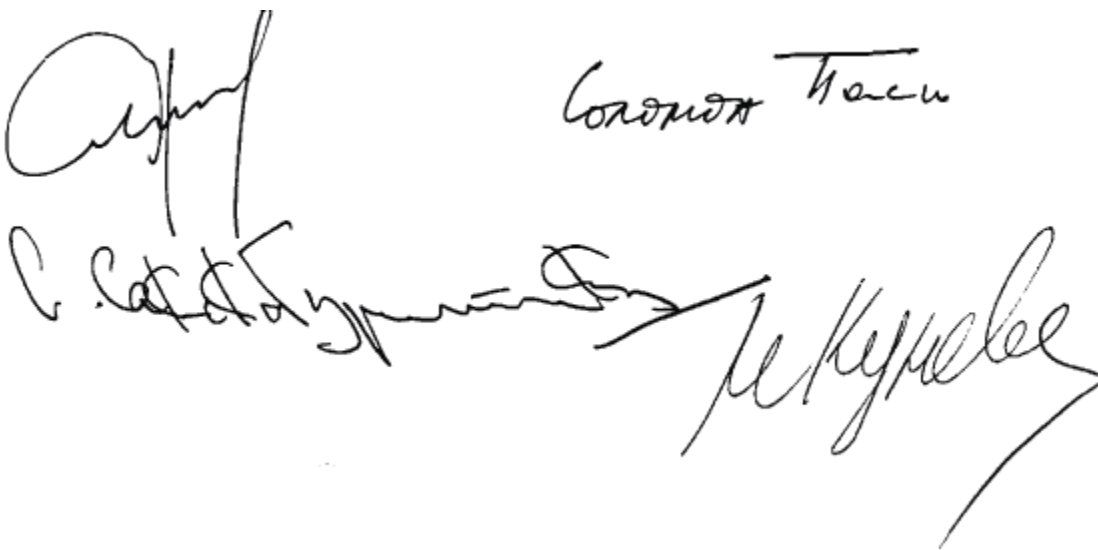 Соломон Паси
С. Сакскобургготски
М Кунева